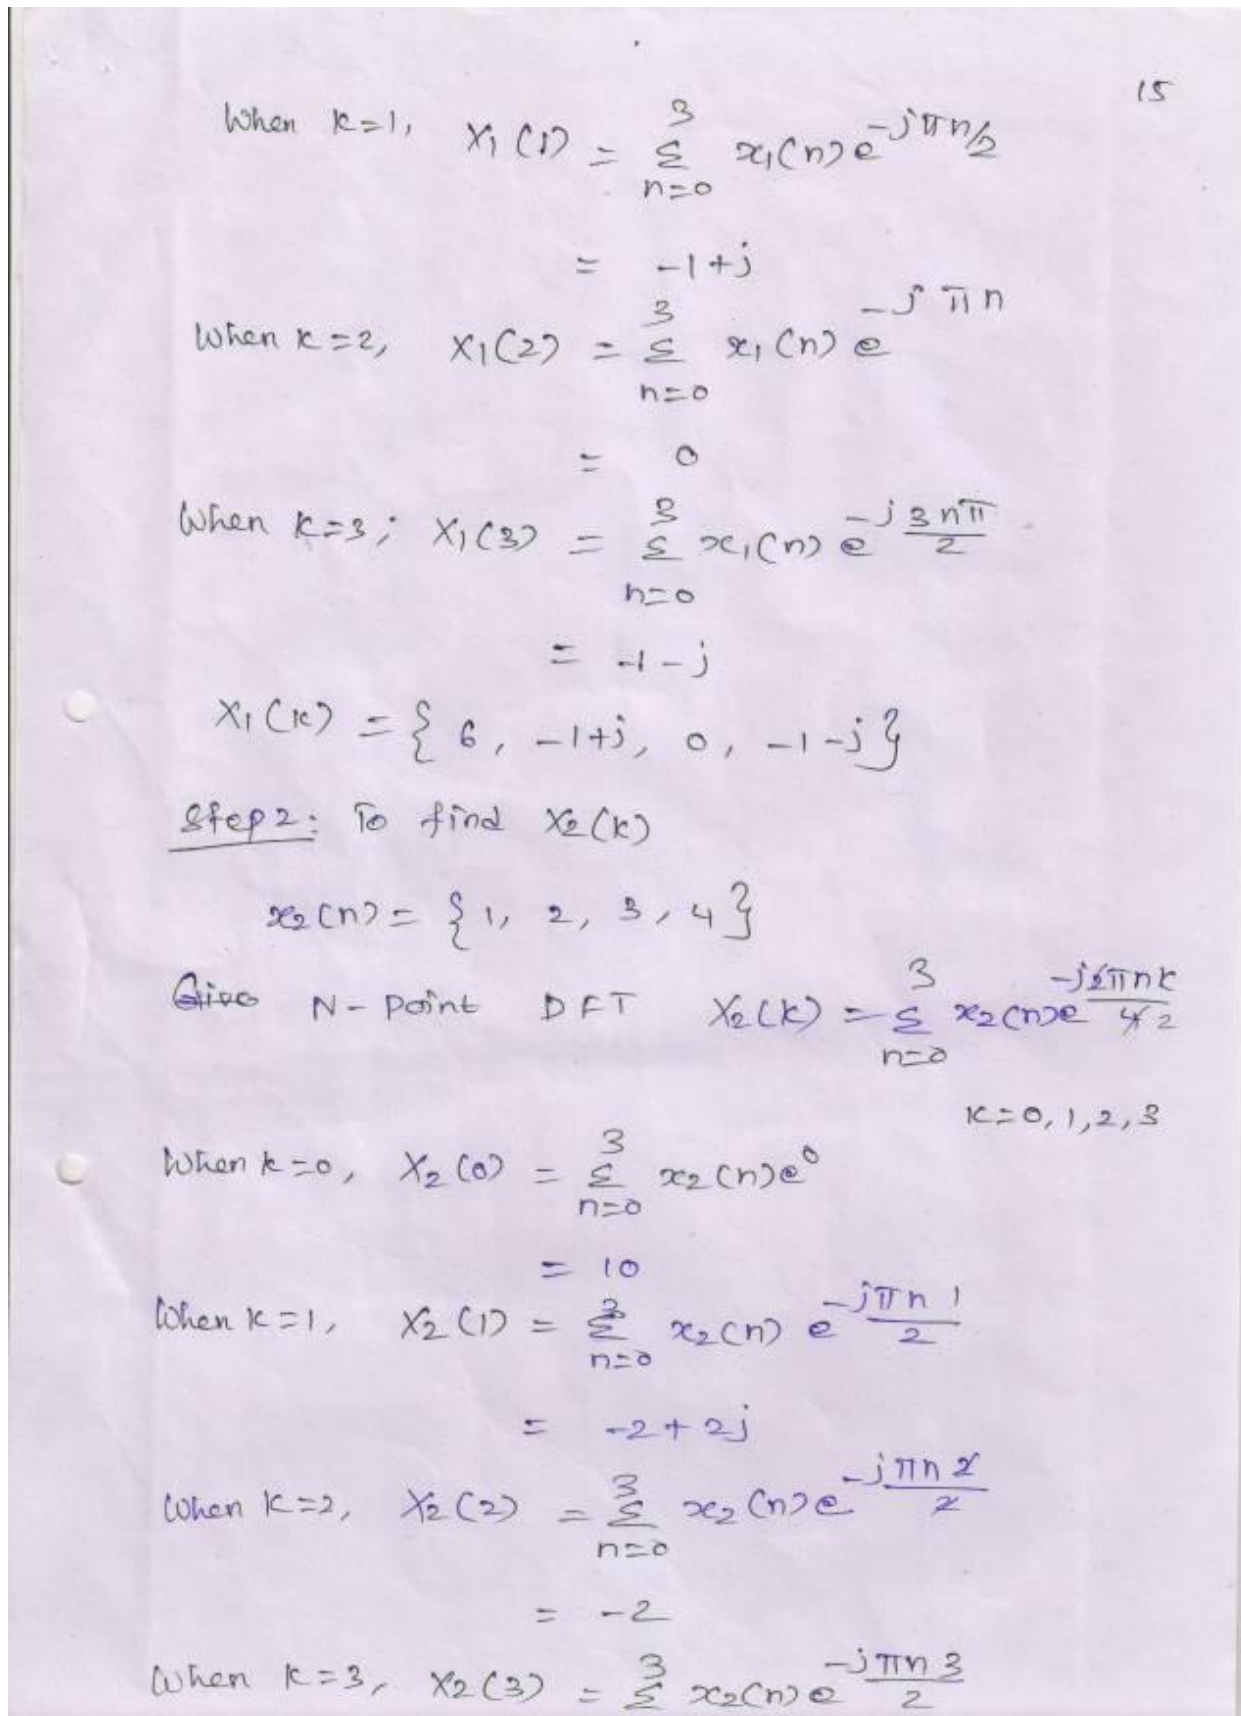 15
When k=1, X₁(1) = 3 Σ n=0 x₁(n) e^-jπn/2
= -1+j
When k=2, X₁(2) = 3 Σ n=0 x₁(n) e^-jπn
= 0
When k=3; X₁(3) = 3 Σ n=0 x₁(n) e^-j3nπ/2
= -1-j
X₁(k) = { 6, -1+j, 0, -1-j }
Step 2: To find X₂(k)
x₂(n) = { 1, 2, 3, 4 }
N-point DFT X₂(k) = 3 Σ n=0 x₂(n) e^-j2πnk/4 2
k=0, 1, 2, 3
When k=0, X₂(0) = 3 Σ n=0 x₂(n) e⁰
= 10
When k=1, X₂(1) = 3 Σ n=0 x₂(n) e^-jπn1/2
= -2+2j
When k=2, X₂(2) = 3 Σ n=0 x₂(n) e^-jπn2/2
= -2
When k=3, X₂(3) = 3 Σ x₂(n) e^-jπn3/2